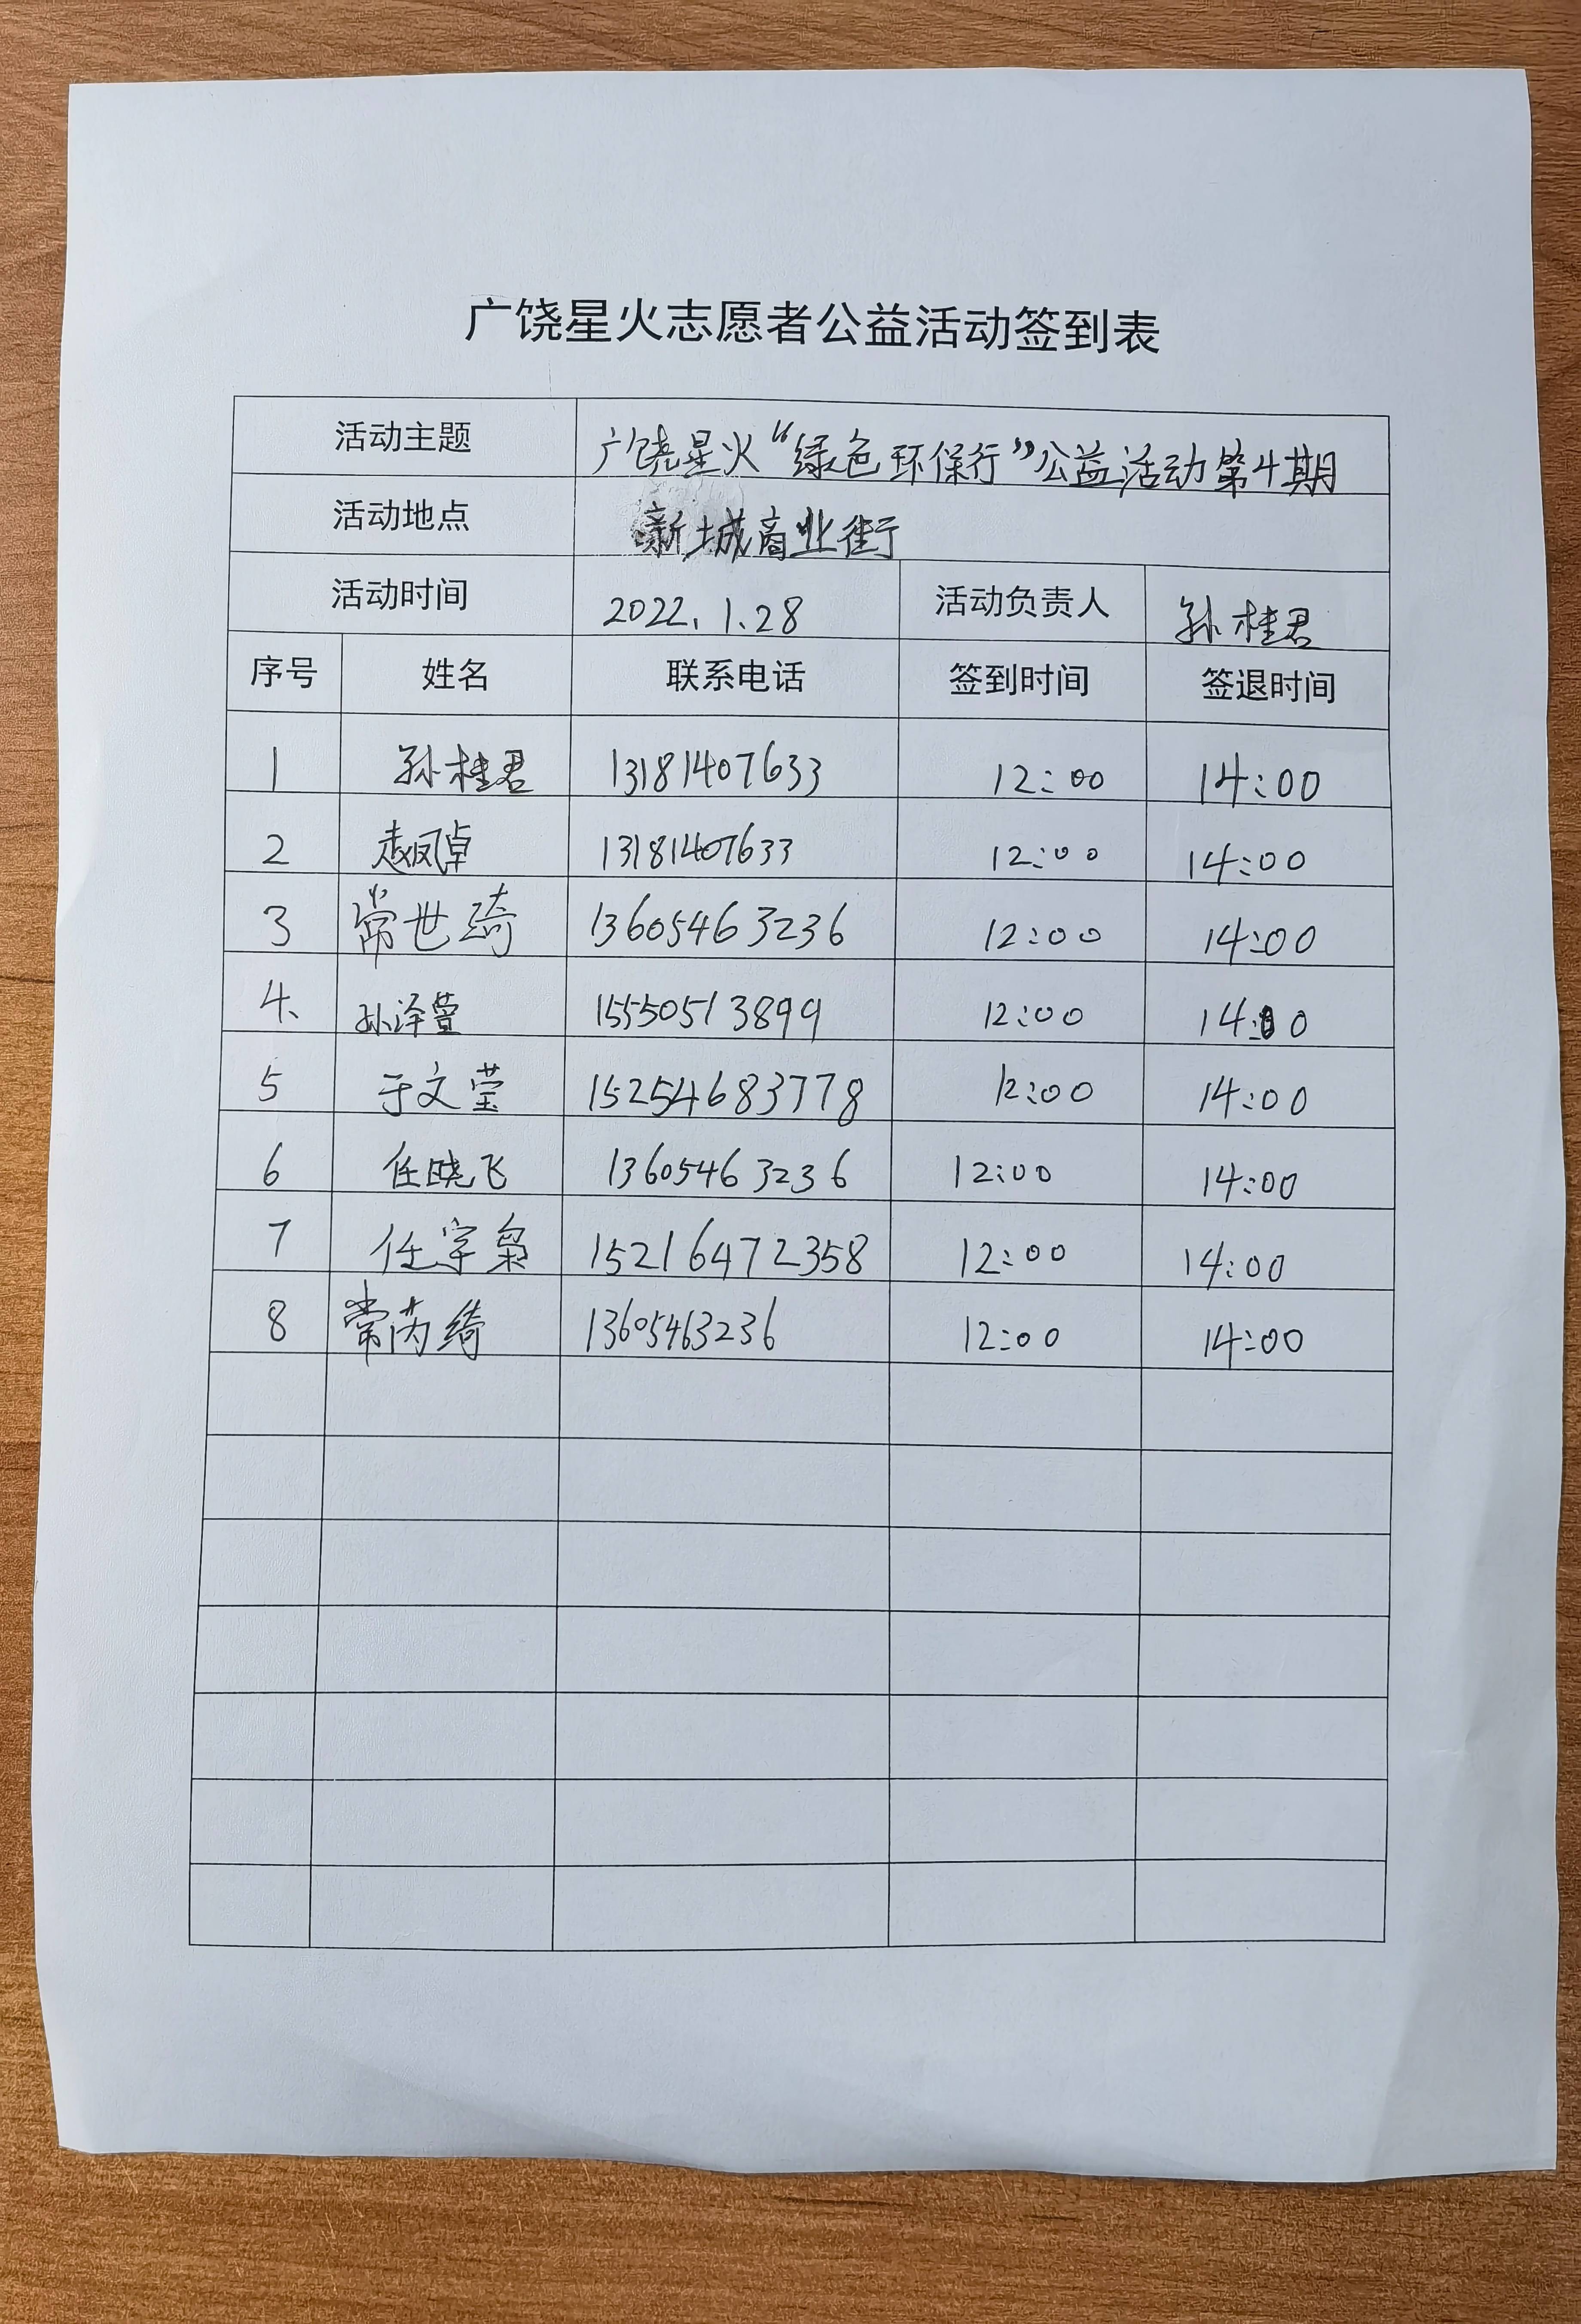 广饶星火志愿者公益活动签到表
活动主题 广饶星火“绿色环保行”公益活动第4期
活动地点 新城商业街
活动时间 2022.1.28 活动负责人 孙桂君
序号 姓名 联系电话 签到时间 签退时间
1 孙桂君 13181407633 12:00 14:00
2 赵凤卓 13181407633 12:00 14:00
3 常世琦 13605463236 12:00 14:00
4、 孙泽萱 15550513899 12:00 14:00
5 于文莹 15254683778 12:00 14:00
6 任晓飞 13605463236 12:00 14:00
7 任宇枭 15216472358 12:00 14:00
8 常芮绮 13605463236 12:00 14:00